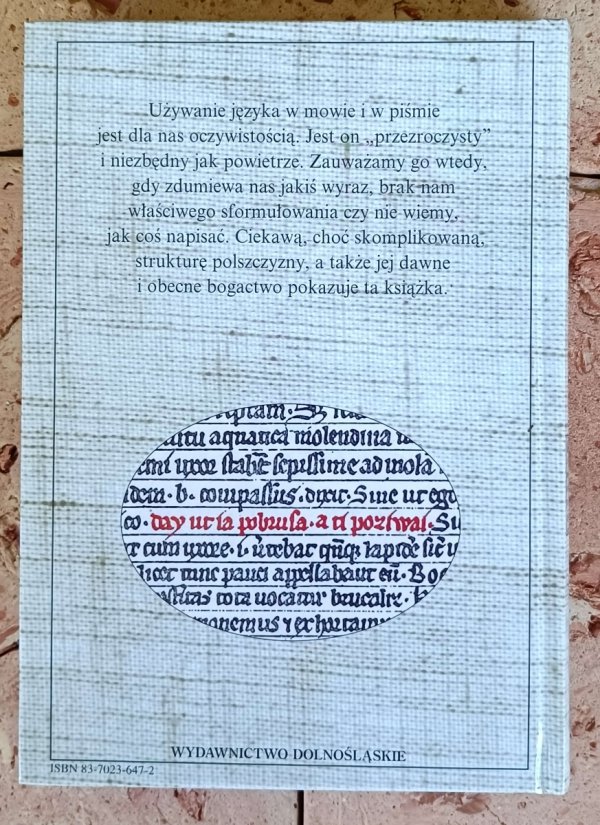 Używanie języka w mowie i w piśmie
jest dla nas oczywistością. Jest on „przezroczysty”
i niezbędny jak powietrze. Zauważamy go wtedy,
gdy zdumiewa nas jakiś wyraz, brak nam
właściwego sformułowania czy nie wiemy,
jak coś napisać. Ciekawą, choć skomplikowaną,
strukturę polszczyzny, a także jej dawne
i obecne bogactwo pokazuje ta książka.
aquatica molendina
sepissime ad mola
b. compassus. dixit. Sine ut ego
day ut ia pobrusa. a ti poziwai. Si
cum uxore.
hcet tunc pauci appellabant
tota uocatur brucalic.
WYDAWNICTWO DOLNOŚLĄSKIE
ISBN 83-7023-647-2